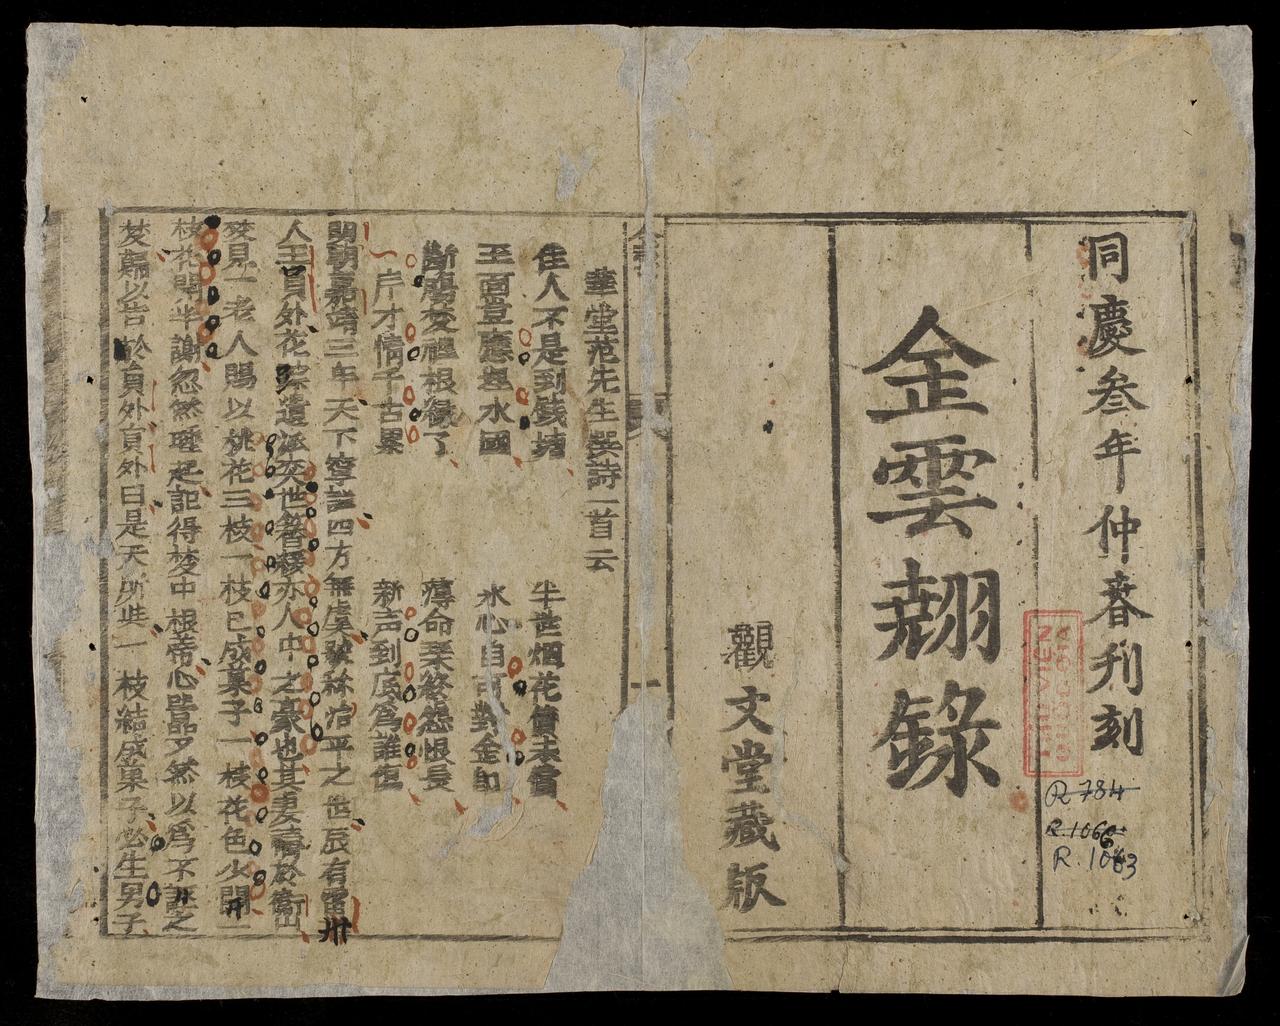 同慶叄年仲春刊刻
金雲翹錄
觀文堂藏版
R 784
R. 1060
R. 1063
華堂范先生撰詩一首云
佳人不是到錢塘 半世烟花債未償
玉面豈應埋水國 氷心自可對金郎
断腸夢裡根緣了 薄命琴終怨恨長
一片才情千古累 新声到底爲誰傷
明朝嘉靖三年天下寧謐四方無虞號称治平之世辰有雷州
人王員外花踪遺派奕世簪纓亦人中之豪也其妻禱於衡山
夢見一老人賜以桃花三枝一枝已成菓子一枝花色少開一
枝花開半謝忽然睡起記得夢中根蒂心甚异然以爲不誣之
夢歸以告於員外員外曰是天所生一枝結成菓子必生男子